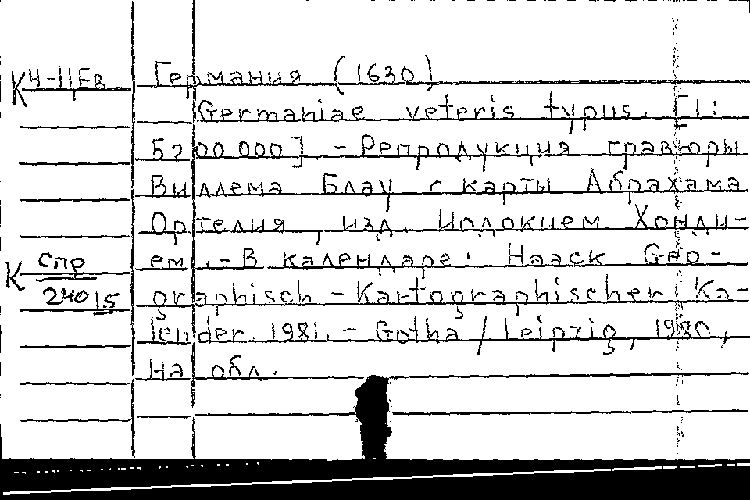 К4-ЦГв Германия (1630)
Germaniae veteris typus. [1:
5200 000] - Репродукция гравюры
Виллема Блау с карты Абрахама
Ортелия, изд. Иодокием Хонди-
ем. - В календаре: Haack Geo-
К Спр
240 15
graphisch-Kartographischer Ka-
lender. 1981. - Gotha / Leipzig, 1980,
на обл.